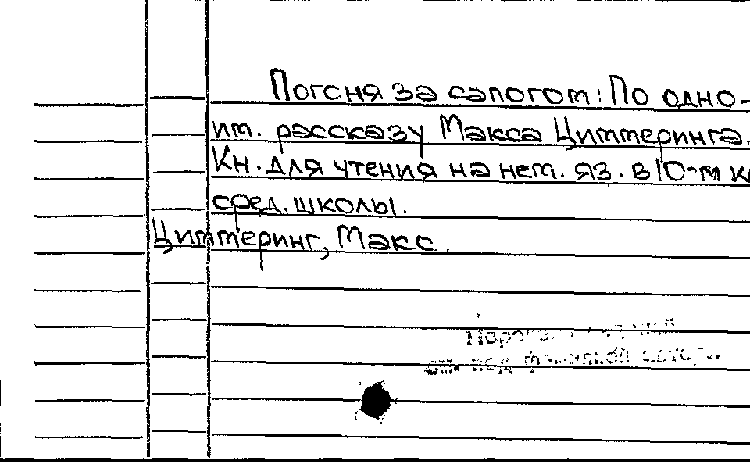 Погоня за сапогом: По одно-
им. рассказу Макса Циммеринга.
Кн. для чтения на нем. яз. в 10-м к
сред. школы.
Циммеринг, Макс.